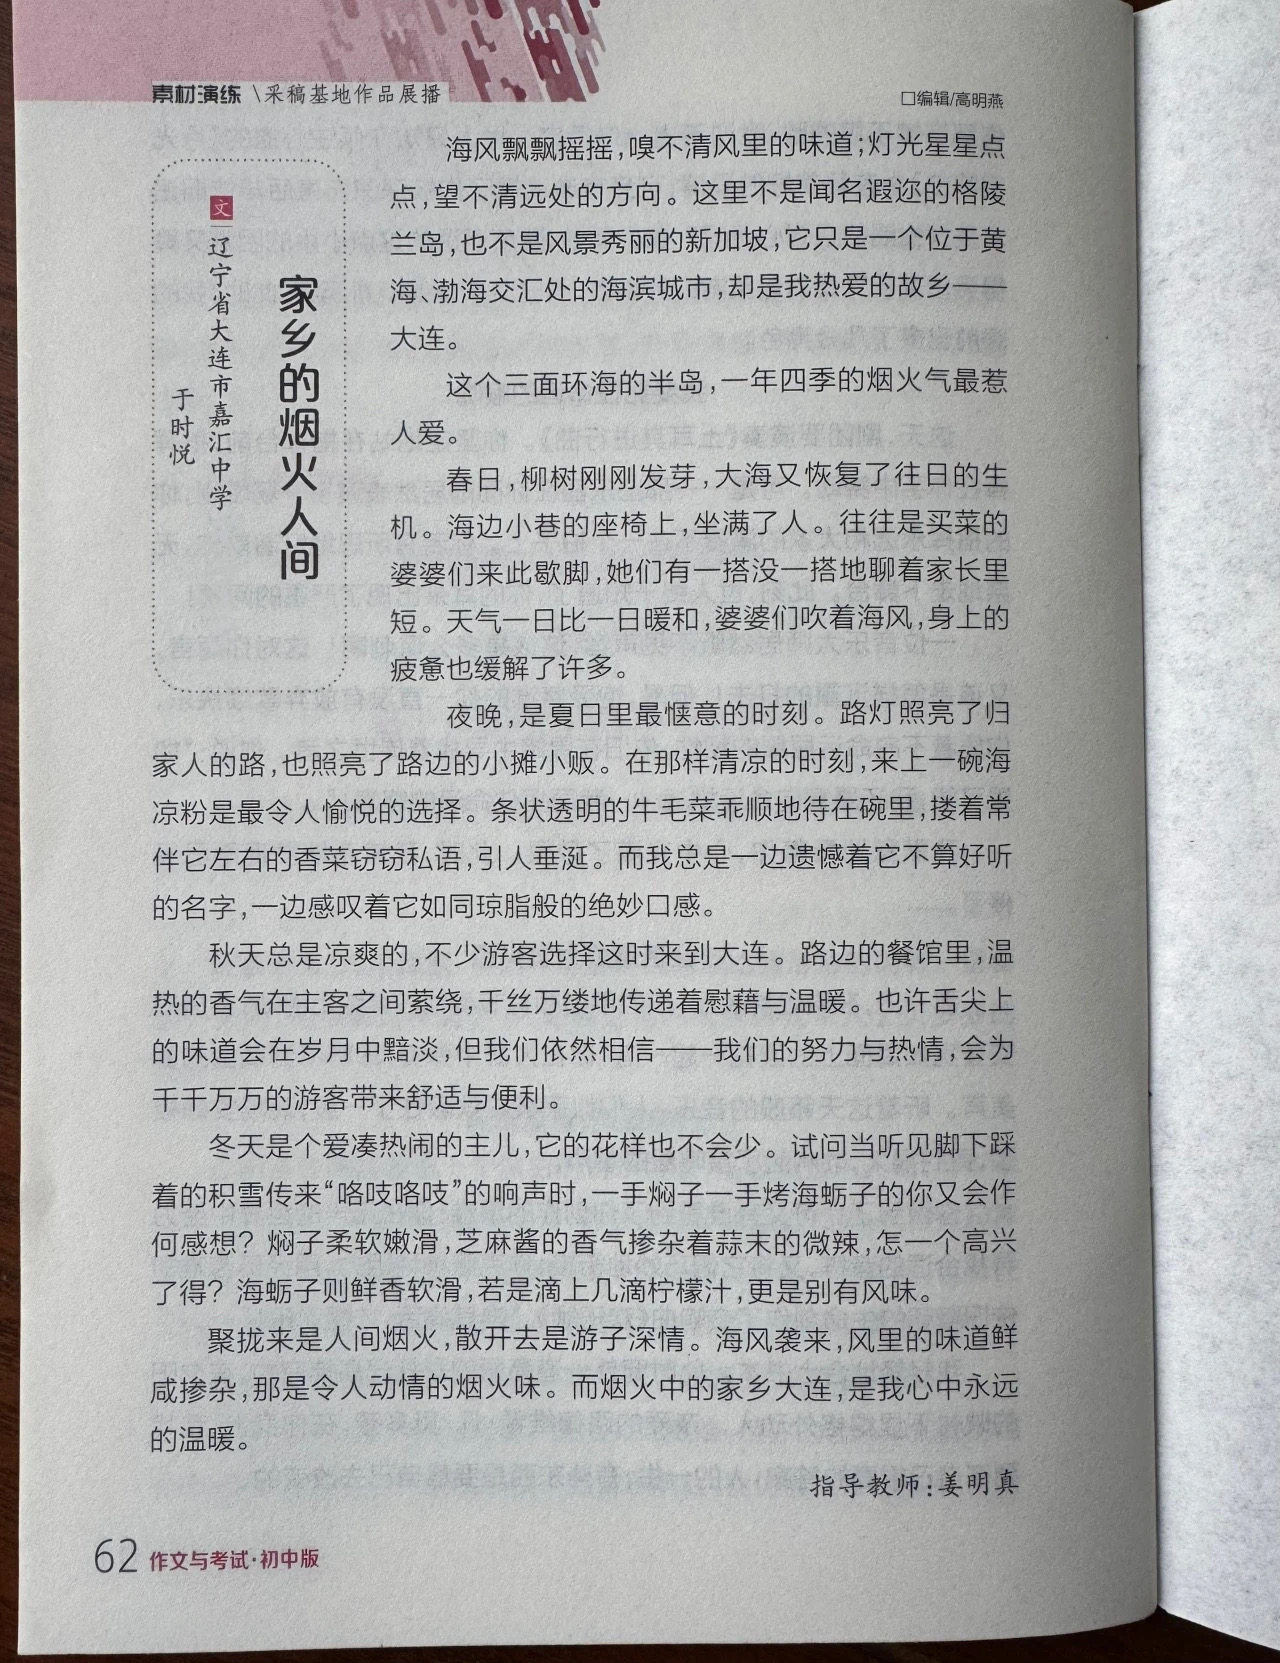 素材演练 \采稿基地作品展播
□编辑/高明燕
家乡的烟火人间
文
辽宁省大连市嘉汇中学
于时悦
海风飘飘摇摇,嗅不清风里的味道;灯光星星点
点,望不清远处的方向。这里不是闻名遐迩的格陵
兰岛,也不是风景秀丽的新加坡,它只是一个位于黄
海、渤海交汇处的海滨城市,却是我热爱的故乡——
大连。
这个三面环海的半岛,一年四季的烟火气最惹
人爱。
春日,柳树刚刚发芽,大海又恢复了往日的生
机。海边小巷的座椅上,坐满了人。往往是买菜的
婆婆们来此歇脚,她们有一搭没一搭地聊着家长里
短。天气一日比一日暖和,婆婆们吹着海风,身上的
疲惫也缓解了许多。
夜晚,是夏日里最惬意的时刻。路灯照亮了归
家人的路,也照亮了路边的小摊小贩。在那样清凉的时刻,来上一碗海
凉粉是最令人愉悦的选择。条状透明的牛毛菜乖顺地待在碗里,搂着常
伴它左右的香菜窃窃私语,引人垂涎。而我总是一边遗憾着它不算好听
的名字,一边感叹着它如同琼脂般的绝妙口感。
秋天总是凉爽的,不少游客选择这时来到大连。路边的餐馆里,温
热的香气在主客之间萦绕,千丝万缕地传递着慰藉与温暖。也许舌尖上
的味道会在岁月中黯淡,但我们依然相信——我们的努力与热情,会为
千千万万的游客带来舒适与便利。
冬天是个爱凑热闹的主儿,它的花样也不会少。试问当听见脚下踩
着的积雪传来“咯吱咯吱”的响声时,一手焖子一手烤海蛎子的你又会作
何感想?焖子柔软嫩滑,芝麻酱的香气掺杂着蒜末的微辣,怎一个高兴
了得?海蛎子则鲜香软滑,若是滴上几滴柠檬汁,更是别有风味。
聚拢来是人间烟火,散开去是游子深情。海风袭来,风里的味道鲜
咸掺杂,那是令人动情的烟火味。而烟火中的家乡大连,是我心中永远
的温暖。
指导教师:姜明真
62 作文与考试·初中版